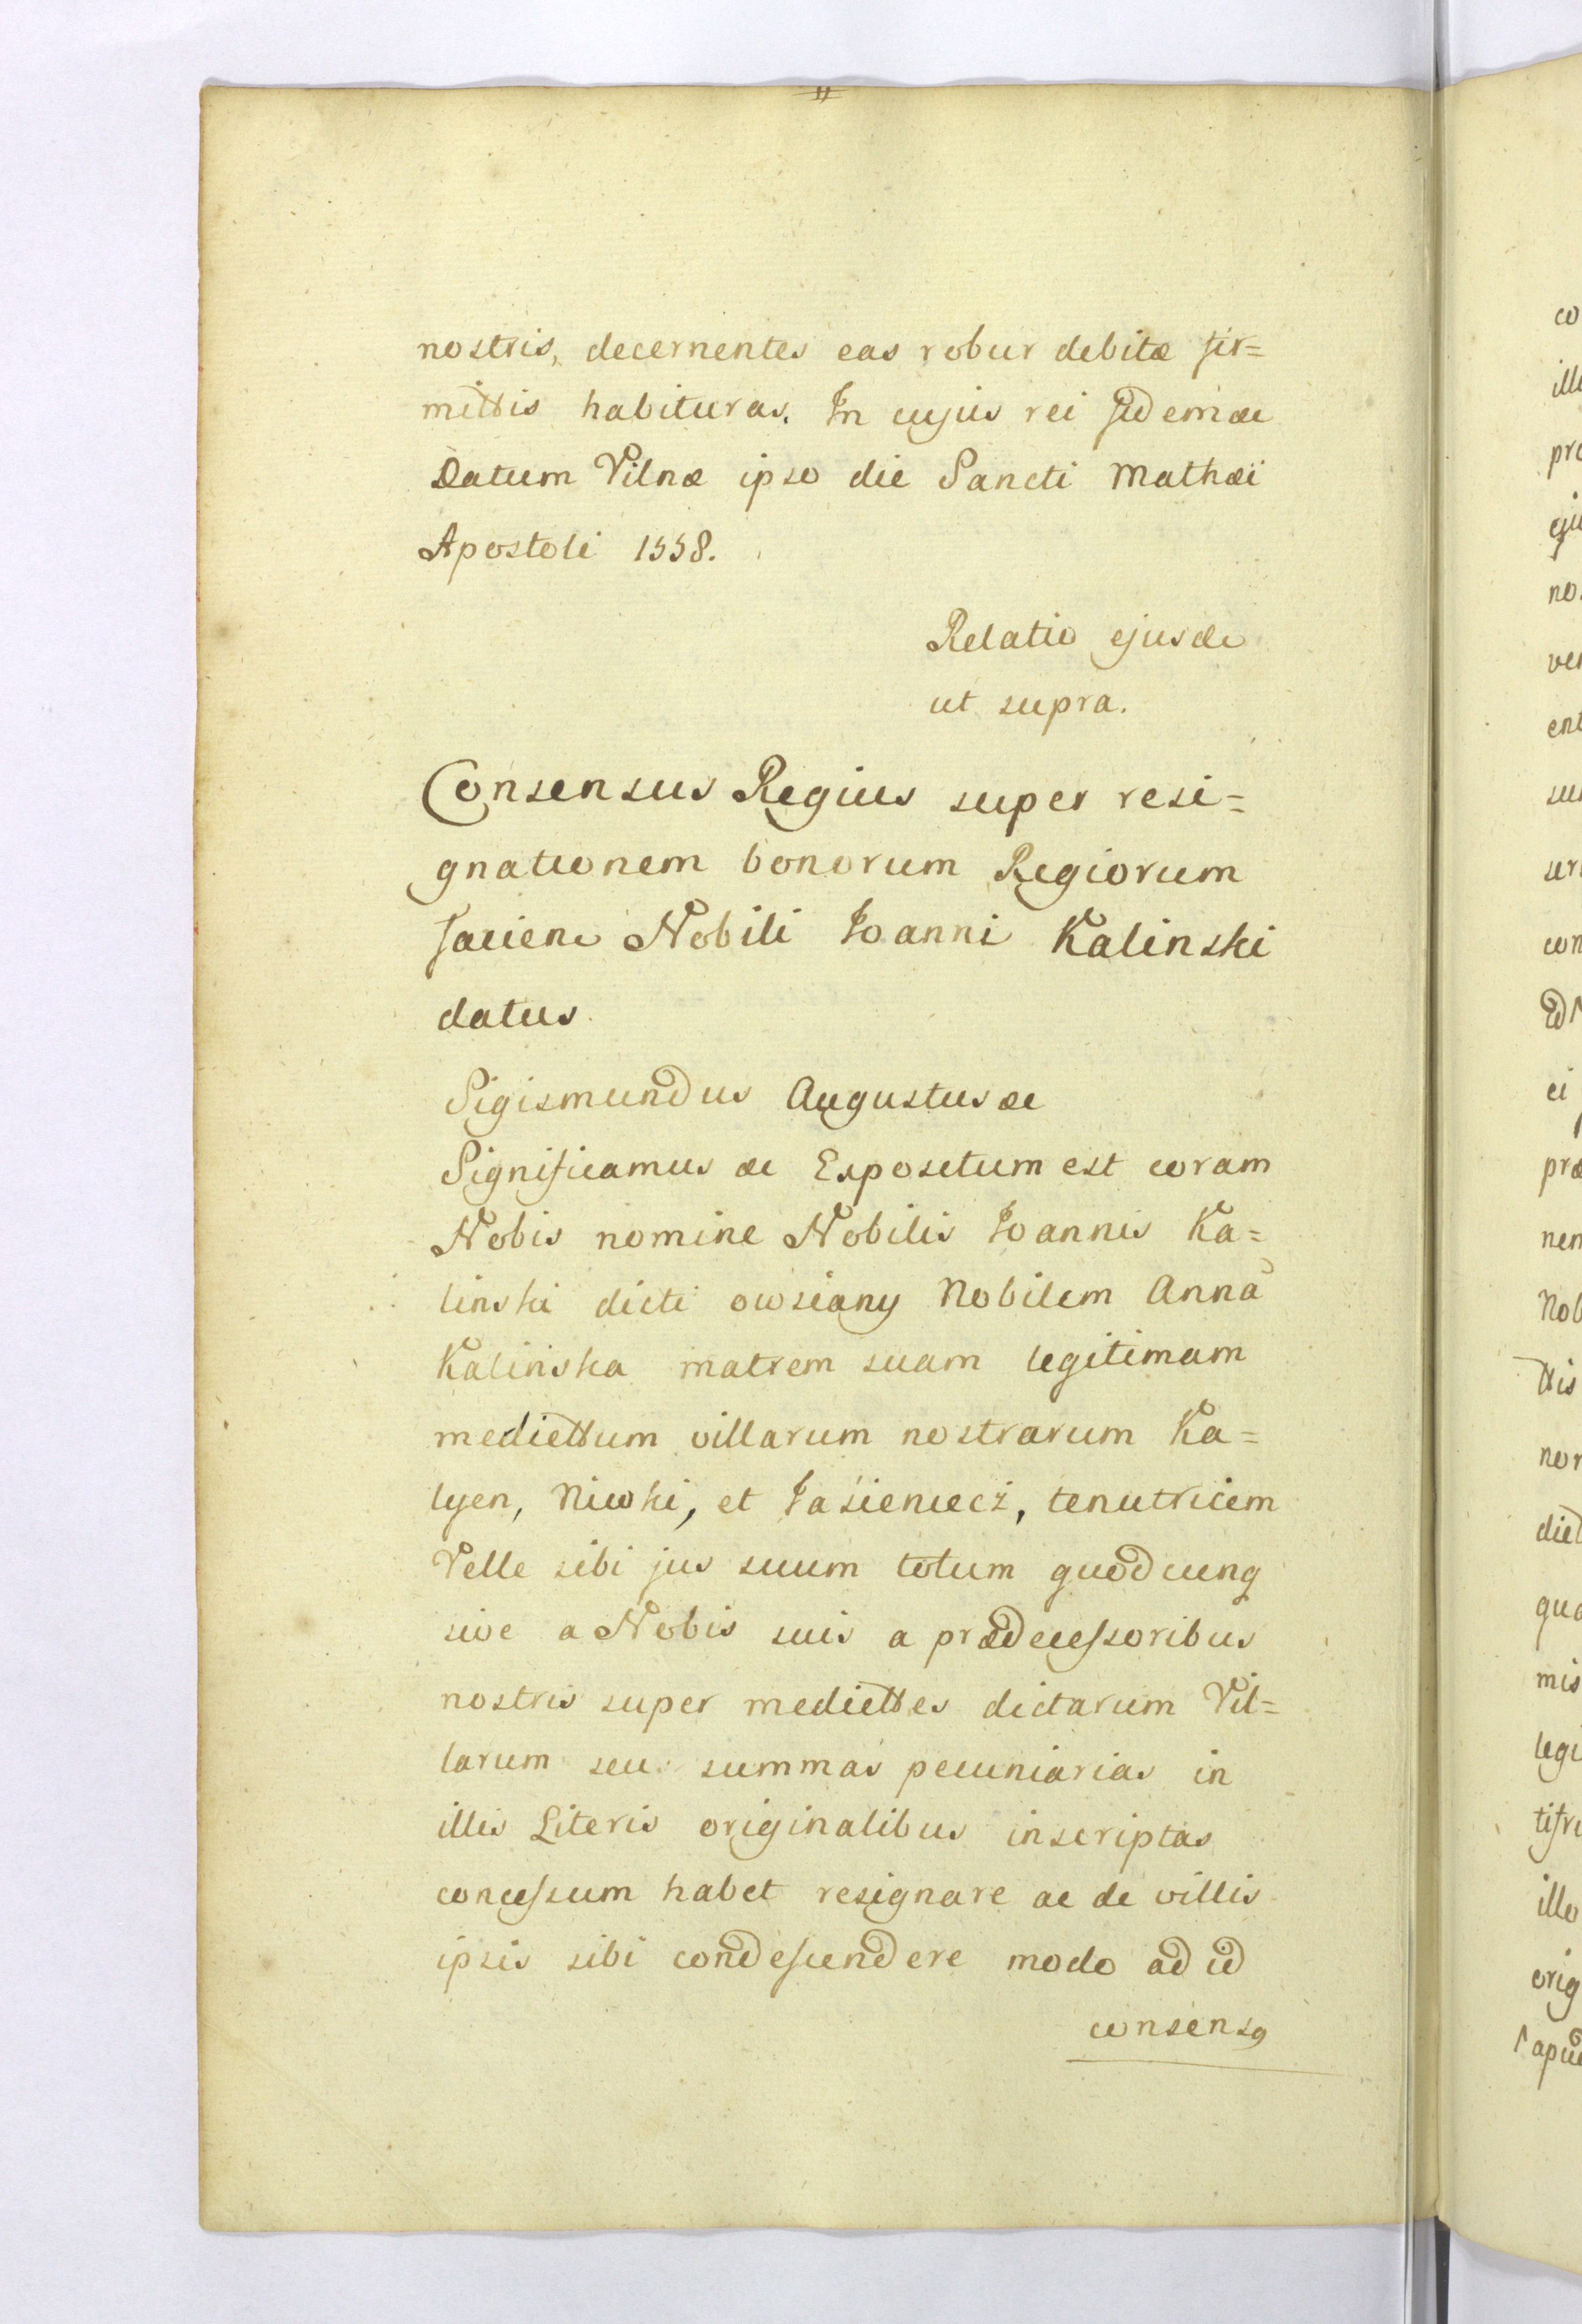 nostris, decernentes eas robur debitæ fir=
mittis habituras. In cujus rei fidem &c
Datum Vilnæ ipso die Sancti Mathæi
Apostoli 1558.
Relatio ejusde
ut supra.
Consensus Regius super resi=
gnationem bonorum Regiorum
facien Nobili Joanni Kalinski
datus
Sigismundus Augustus &c
Significamus &c Expositum est coram
Nobis nomine Nobilis Joannis Ka=
linski dicti owsiany Nobilem Annã
Kalinska matrem suam legitimam
mediettum villarum nostrarum Ka=
lyen, Niwki, et Jasieniecz, tenutricem
Velle sibi jus suum totum quodcunq
sive a Nobis suis a prædecessoribus
nostris super mediettes dictarum Vil=
larum seu summas pecuniarias in
illis Literis originalibus inscriptas
concessum habet resignare ac de villis
ipsis sibi condescendere modo ad id
consensꝯ
co
ill
pre
eju
no
ver
ent
sur
con
ei
præ
nem
Nob
ttis
nor
died
qua
mis
legi
illo
orig